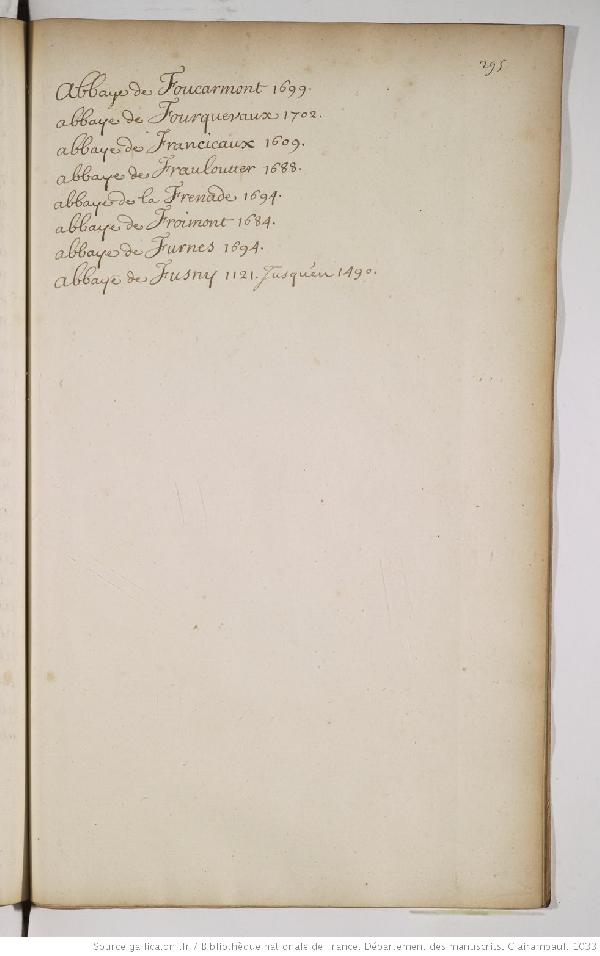 295
Abbaye de Foucarmont 1699.
abbaye de Fourquevaux 1702.
abbaye de Francicaux 1609.
abbaye de Frauloutter 1688.
abbaye de la Frenade 1694.
abbaye de Froimont 1684.
abbaye de Furnes 1694.
abbaye de Fusny 1121. Jusqu'en 1490.
Source gallica.bnf.fr / Bibliothèque nationale de France. Département des manuscrits. Clairambault 1033